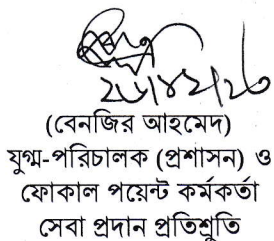 (বেনজির আহমেদ)
যুগ্ম-পরিচালক (প্রশাসন) ও
ফোকাল পয়েন্ট কর্মকর্তা
সেবা প্রদান প্রতিশ্রুতি